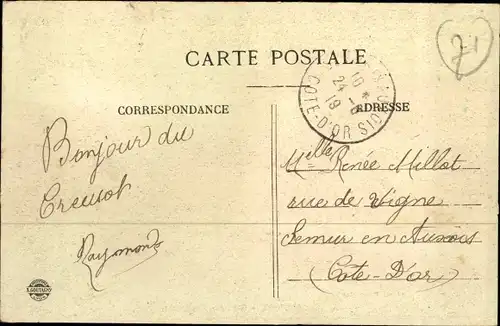 71
CARTE POSTALE
CORRESPONDANCE
ADRESSE
COTE-D'OR
10 *
24 -8
19
Bonjour du
Creusot
Raymond
Mlle Renée Millot
rue de Vigne
Semur en Auxois
(Cote-D'or)